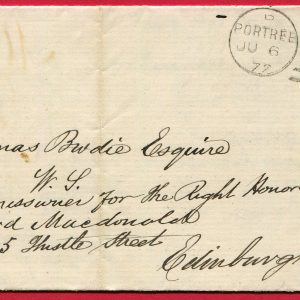 D
PORTREE
JU 6
77
mas Brodie Esquire
W. S.
missioner for the Right Honor
d Macdonald
5 Thistle Street
Edinburgh